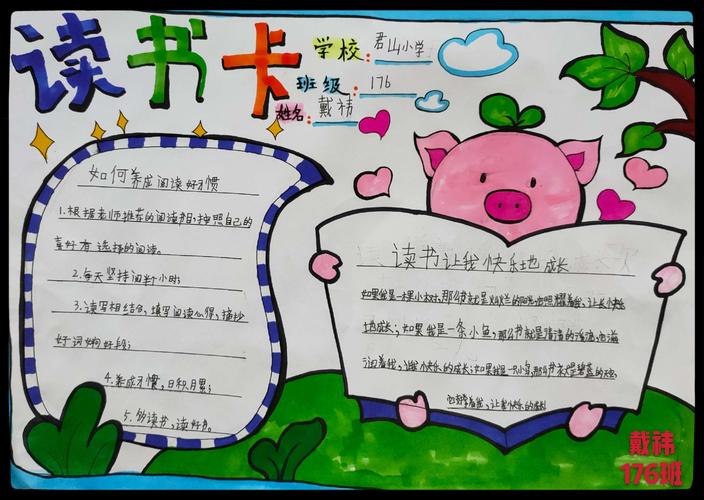 读书卡
学校:君山小学
班级:176
姓名:戴祎
如何养成阅读好习惯
1.根据老师推荐的阅读书目,按照自己的
喜好有选择的阅读。
2.每天坚持阅半个小时;
3.读写相结合,填写阅读心得,摘抄
好词好段;
4.养成习惯,日积月累;
5.多读书,读好书。
读书让我快乐地成长
如果我是一棵小树,那么书就是的阳光,它照耀着我,让我快快
地成长;如果我是一条小鱼,那么书就是清清的溪流,它滋
润着我,让我快乐的成长;如果我是一只小鸟,那么书就是碧蓝的天空,
它着我,让我快乐的成长
戴祎
176班